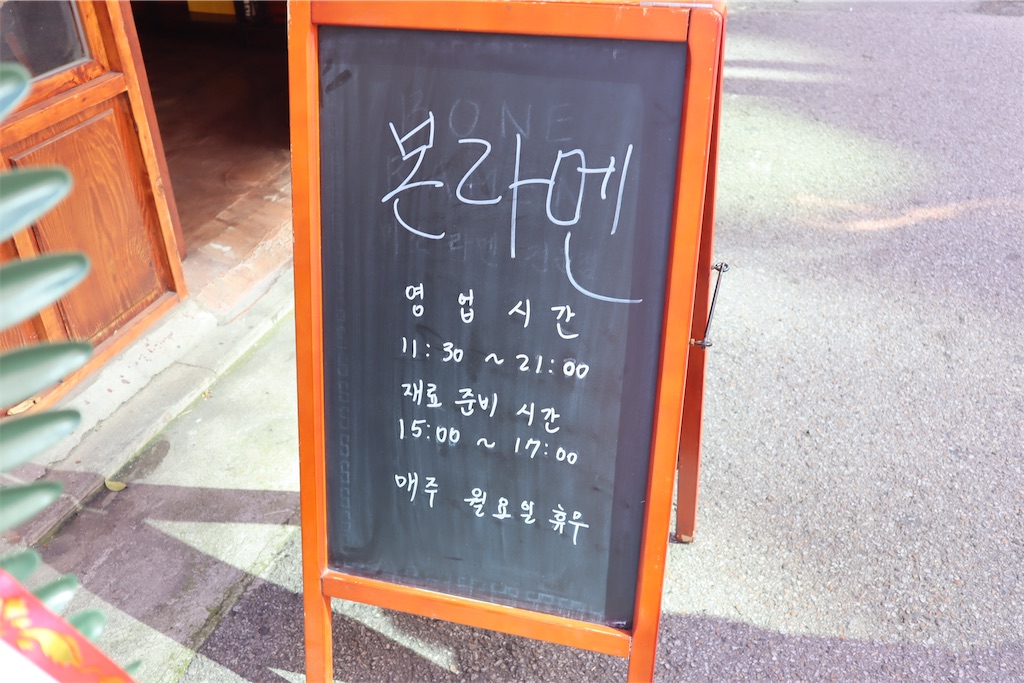 BONE
본라멘
영업시간
11:30 ~ 21:00
재료 준비 시간
15:00 ~ 17:00
매주 월요일 휴무